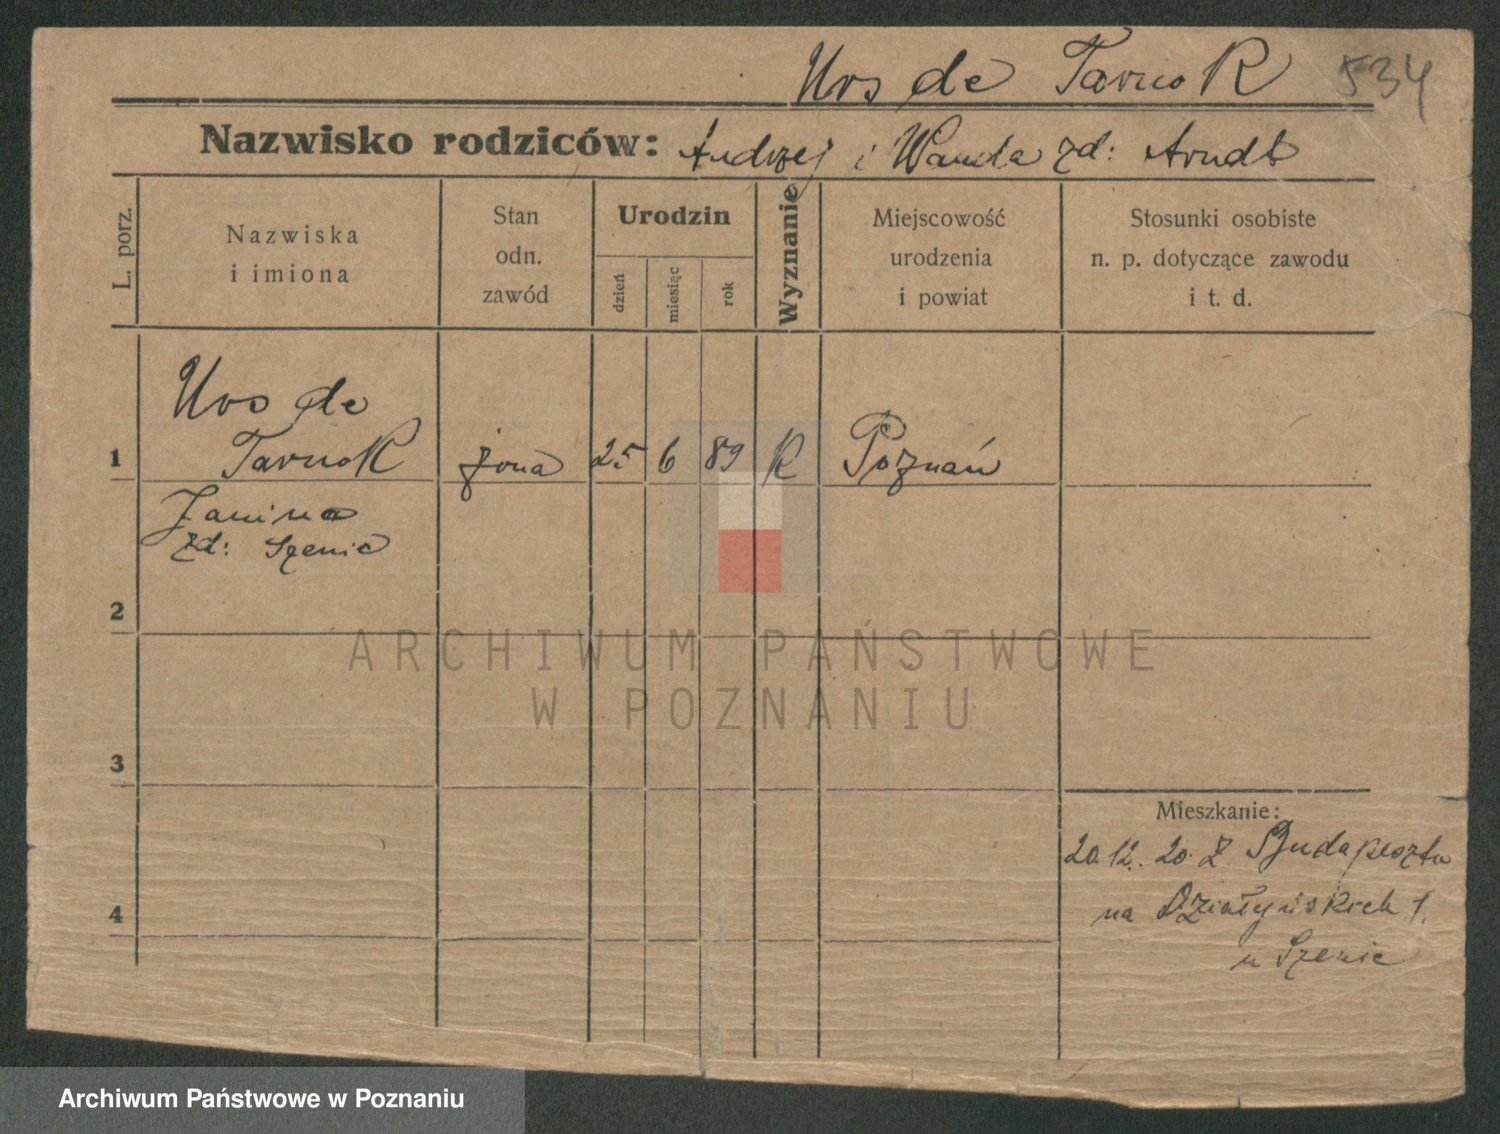 Urs de Tarnok 534
Nazwisko rodziców: Andrzej i Wanda zd: Arndt
L. porz.
Nazwiska
i imiona
Stan
odn.
zawód
Urodzin
dzień
miesiąc
rok
Wyznanie
Miejscowość
urodzenia
i powiat
Stosunki osobiste
n. p. dotyczące zawodu
i t. d.
Urs de
1 Tarnok żona 25 6 89 K Poznań
Janina
zd: Szenic
2
ARCHIWUM PAŃSTWOWE
W POZNANIU
3
Mieszkanie:
20.12.20. z Budapesztu
4 na Działyńskich 1.
u Szenic
Archiwum Państwowe w Poznaniu